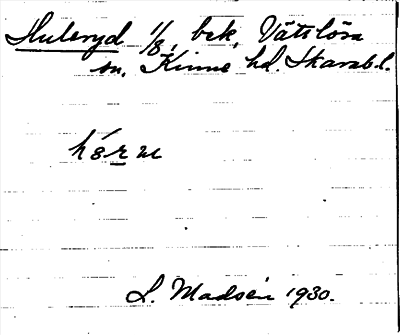 Huleryd 1/8, bek, Vätlösa
sn. Kinne hd. Skarab.l.
L. Madsén 1930.